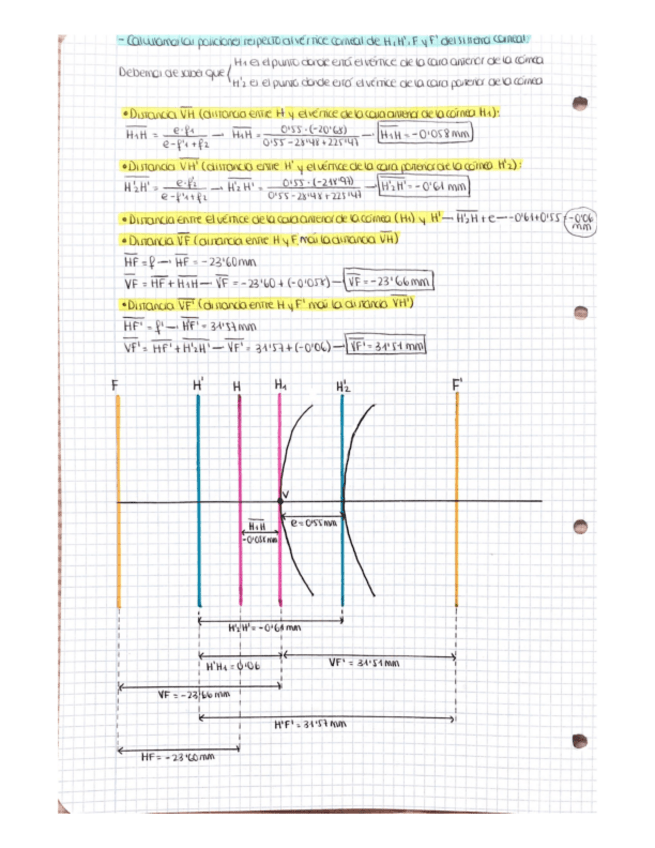 - Calculamos las posiciones respecto al vértice corneal de H, H', F y F' del sistema corneal:
Debemos de saber que { H₁ es el punto donde está el vértice de la cara anterior de la córnea
H'₂ es el punto donde está el vértice de la cara posterior de la córnea
• Distancia VH (distancia entre H y el vértice de la cara anterior de la córnea H₁):
H₁H = e·f₁ / e-f'₁+f₂ → H₁H = 0'55·(-20'68) / 0'55-28'48+225'47 → H₁H = -0'058 mm
• Distancia VH' (distancia entre H' y el vértice de la cara posterior de la córnea H'₂):
H'₂H' = e·f'₂ / e-f'₁+f₂ → H'₂H' = 0'55·(-218'97) / 0'55-28'48+225'47 → H'₂H' = -0'61 mm
• Distancia entre el vértice de la cara anterior de la córnea (H₁) y H' → H'₂H+e → -0'61+0'55 = -0'06 mm
• Distancia VF (distancia entre H y F más la distancia VH)
HF = f → HF = -23'60mm
VF = HF + H₁H → VF = -23'60 + (-0'058) → VF = -23'66 mm
• Distancia VF' (distancia entre H y F' más la distancia VH')
HF' = f' → HF' = 31'57 mm
VF' = HF' + H'₂H' → VF' = 31'57 + (-0'06) → VF' = 31'51 mm
F H' H H₁ H'₂ F'
V
e = 0'55 mm
H₁H
-0'058 mm
H'₂H' = -0'61 mm
H'H₁ = 0'06
VF' = 31'51 mm
VF = -23'66 mm
H'F' = 31'57 mm
HF = -23'60mm